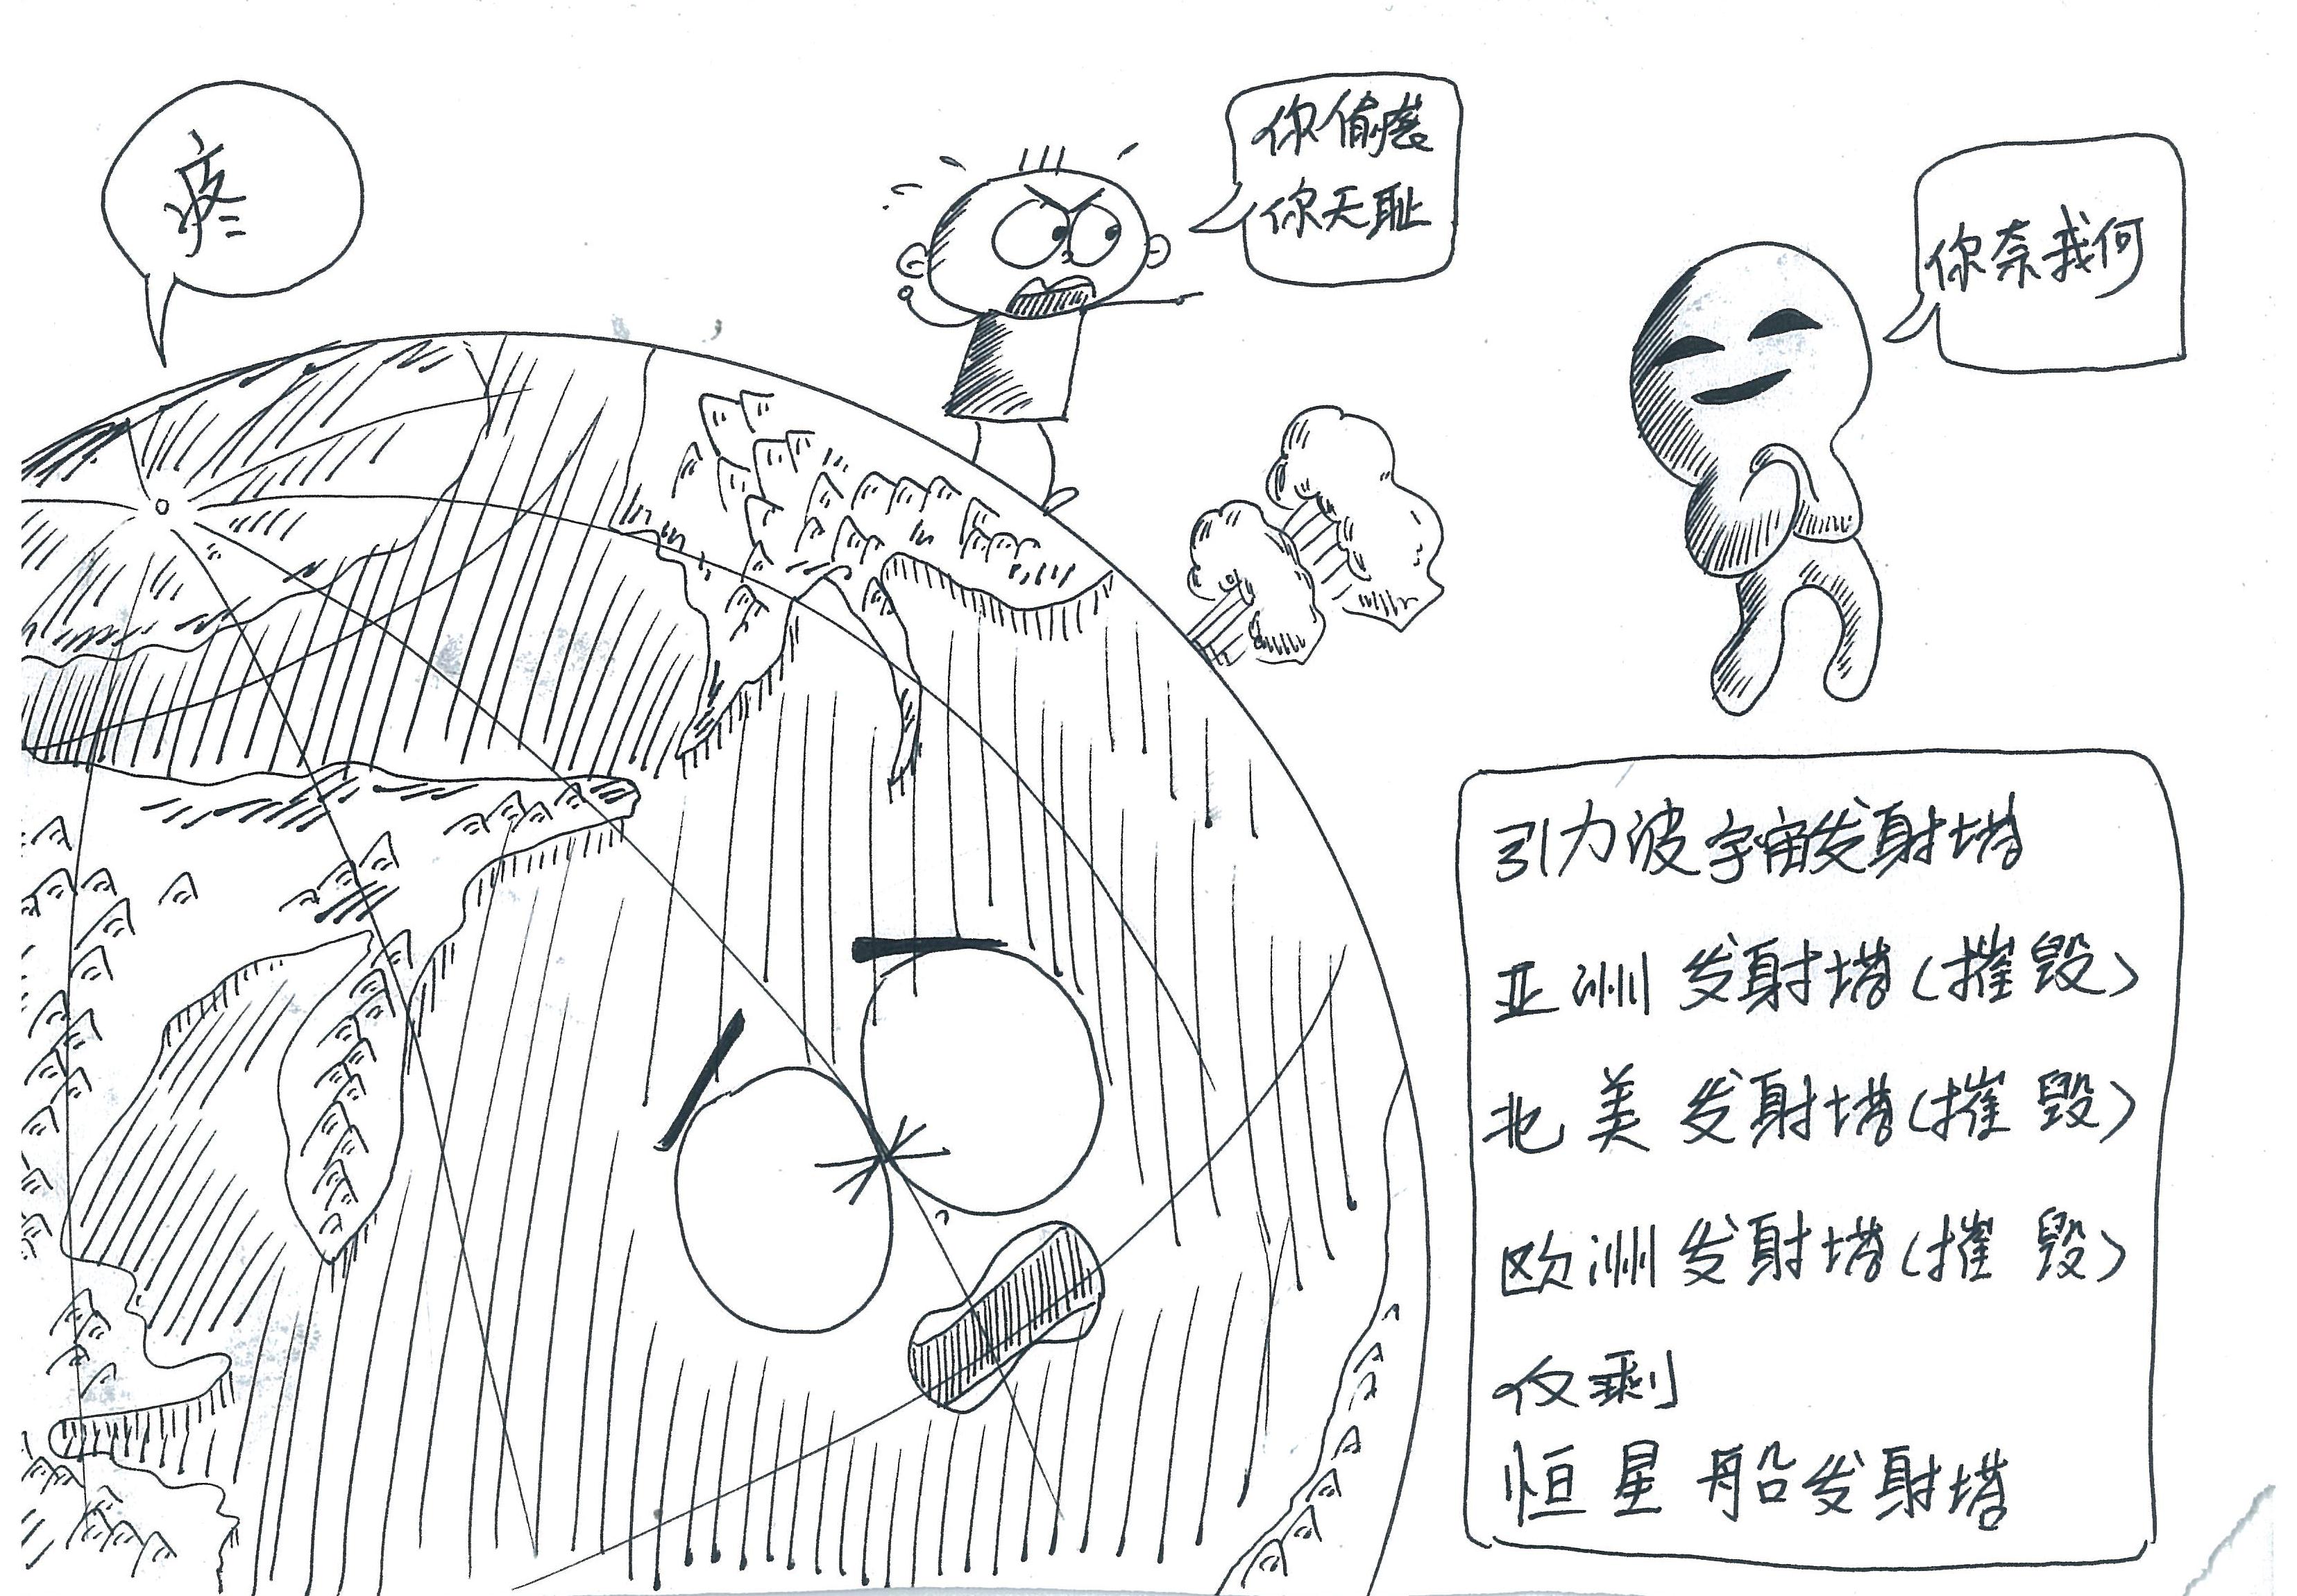 疼
你偷袭
你无耻
你奈我何
引力波宇宙发射塔
亚洲发射塔(摧毁)
北美发射塔(摧毁)
欧洲发射塔(摧毁)
仅剩
恒星船发射塔